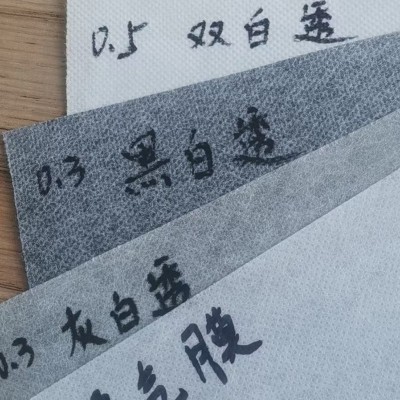 0.5 双白透
0.3 黑白透
0.3 灰白透
气膜